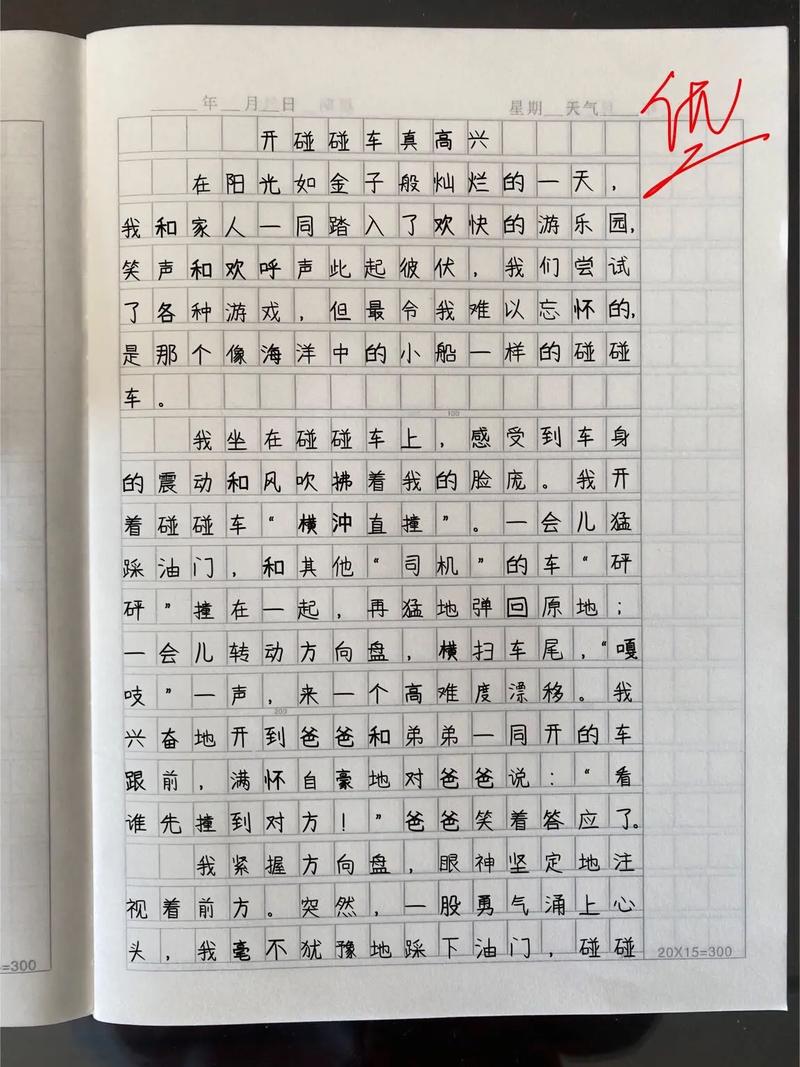 年 月 日 星期 天气
优
开碰碰车真高兴
在阳光如金子般灿烂的一天，
我和家人一同踏入了欢快的游乐园，
笑声和欢呼声此起彼伏，我们尝试
了各种游戏，但最令我难以忘怀的，
是那个像海洋中的小船一样的碰碰
车。
100
我坐在碰碰车上，感受到车身
的震动和风吹拂着我的脸庞。我开
着碰碰车“横冲直撞”。一会儿猛
踩油门，和其他“司机”的车“砰
砰”撞在一起，再猛地弹回原地；
一会儿转动方向盘，横扫车尾，“嘎
吱”一声，来一个高难度漂移。我
兴奋地开到爸爸和弟弟一同开的车
跟前，满怀自豪地对爸爸说：“看
谁先撞到对方！”爸爸笑着答应了。
我紧握方向盘，眼神坚定地注
视着前方。突然，一股勇气涌上心
头，我毫不犹豫地踩下油门，碰碰
20X15=300
=300